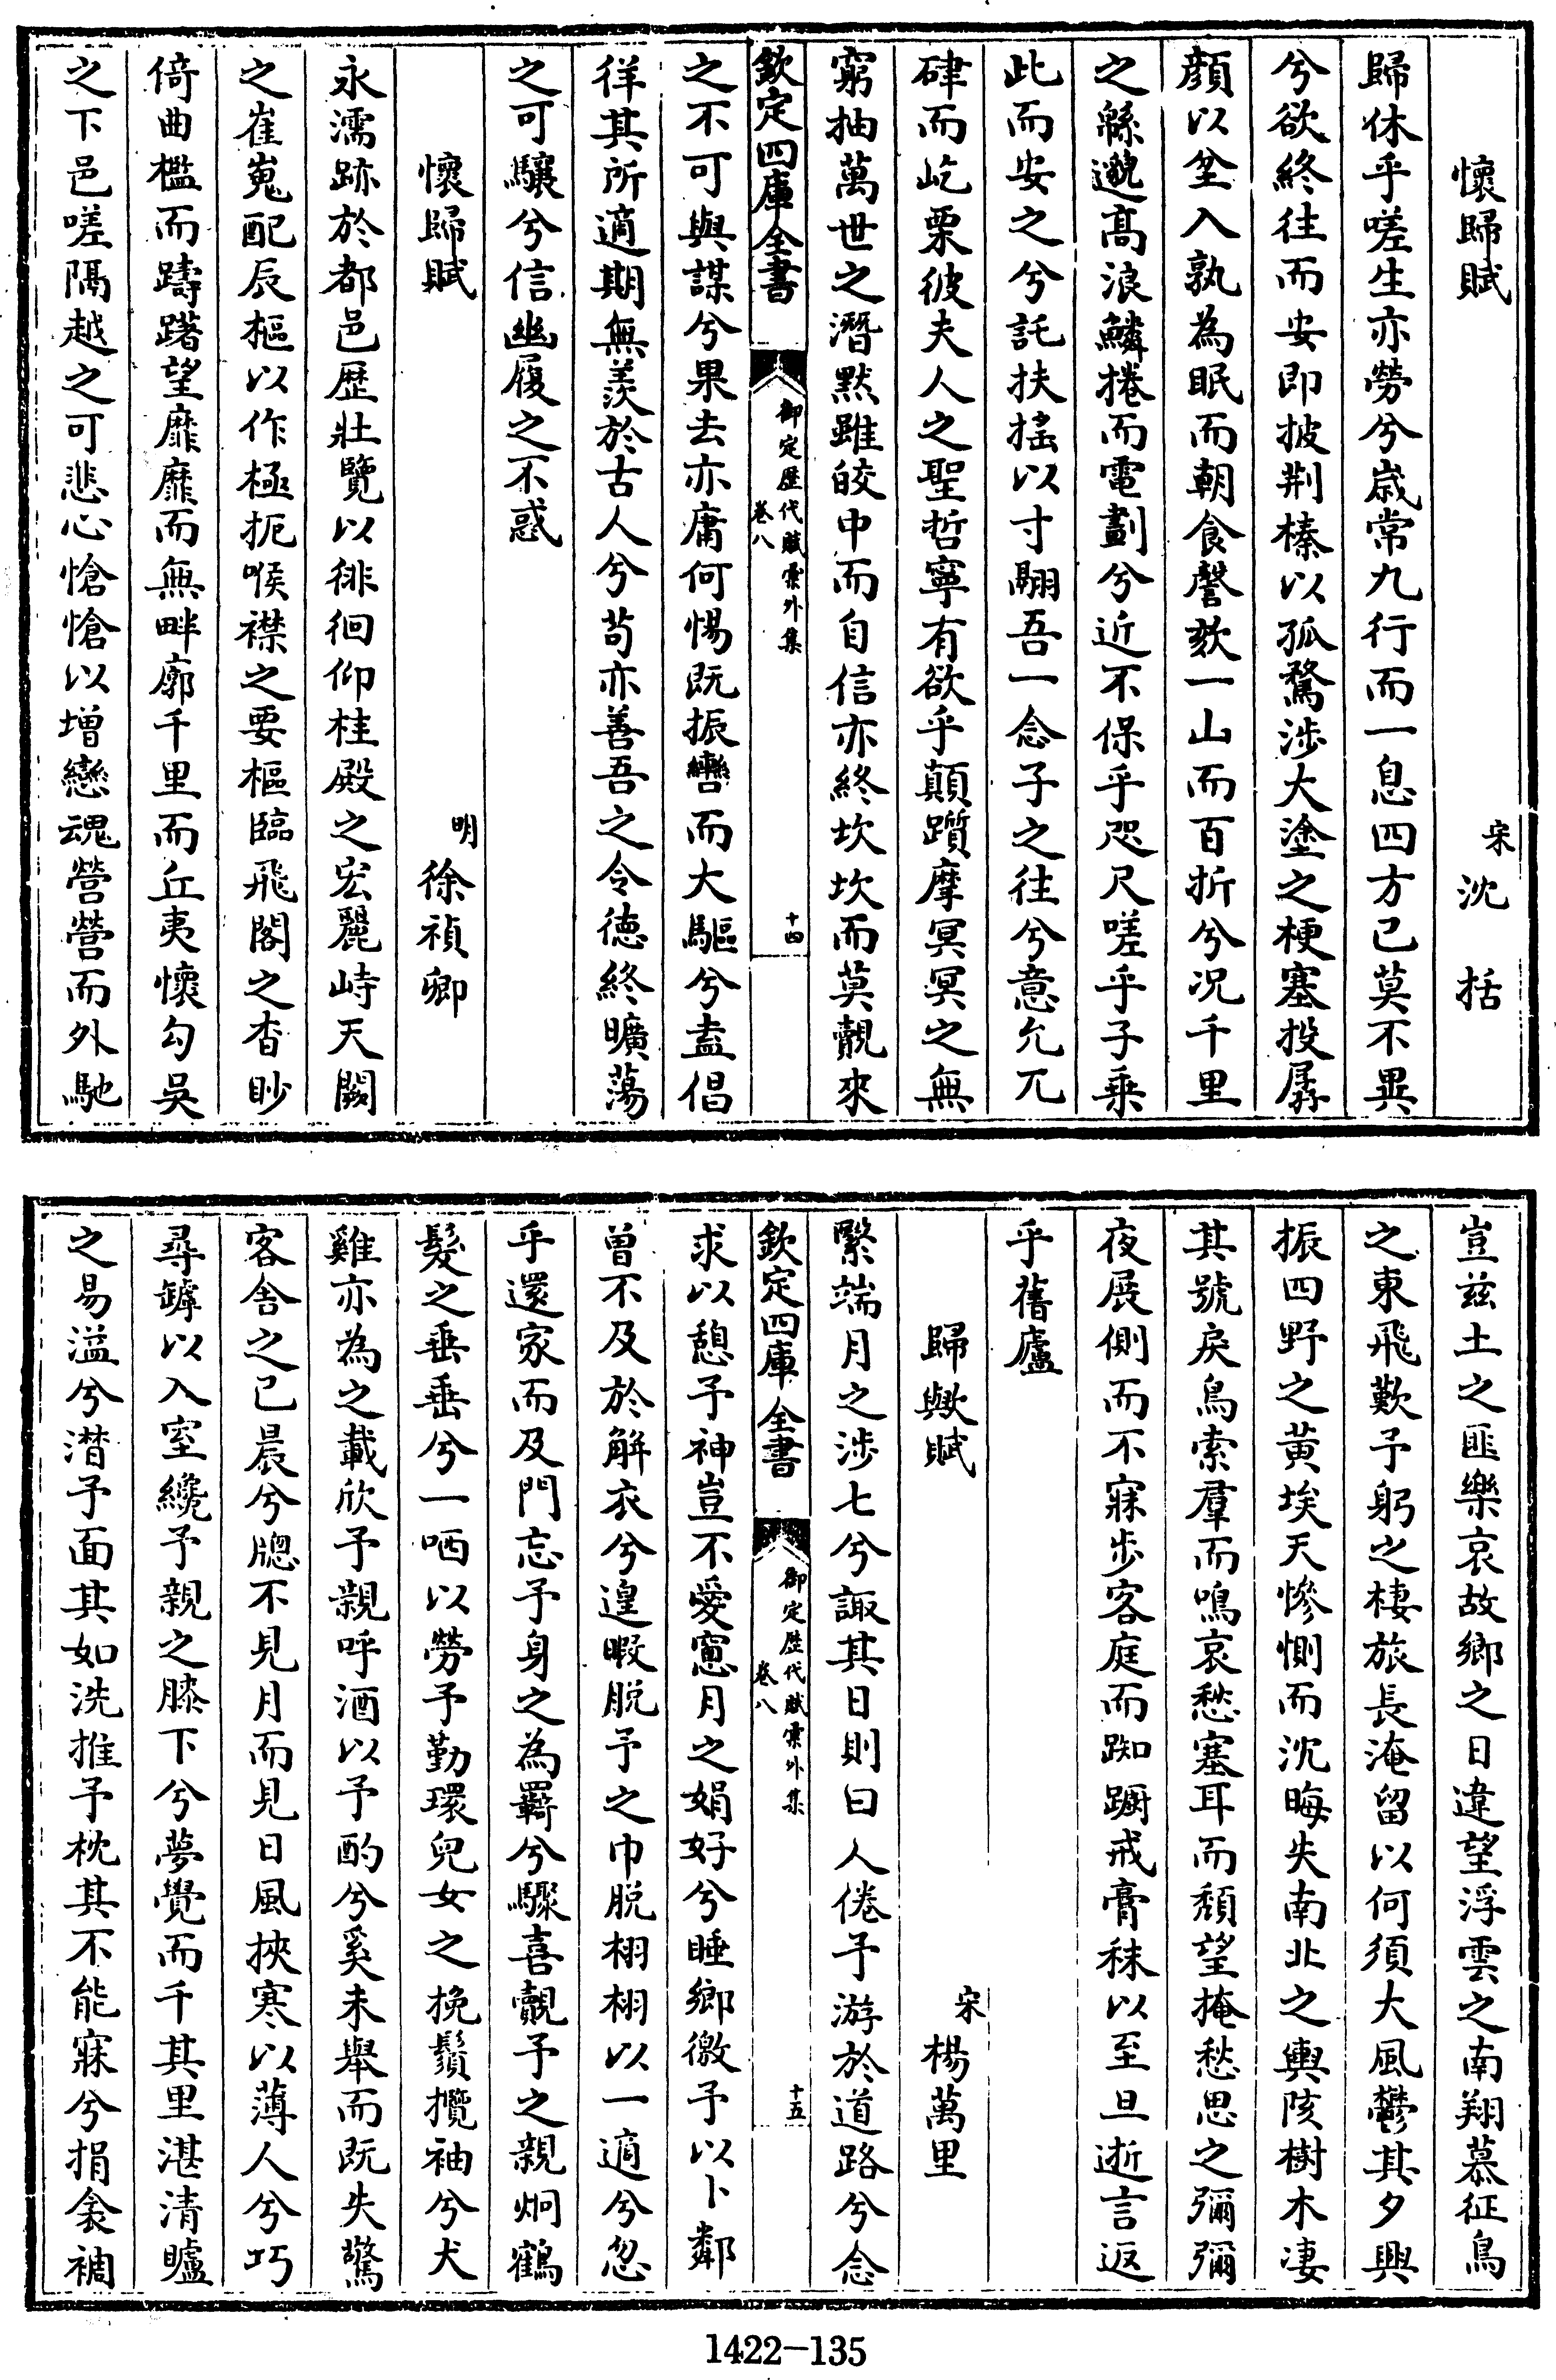 懷歸賦　宋沈括
歸休乎嗟生亦勞兮嵗常九行而一息四方已莫不異
兮欲終往而安即披荆榛以孤騖渉大塗之梗塞投孱
顔以坌入孰為眠而朝食謦欬一山而百折兮况千里
之緜邈高浪鱗捲而電劃兮近不保乎咫尺嗟乎子乗
此而安之兮託扶揺以寸翮吾一念子之往兮意允兀
硉而屹栗彼夫人之聖哲寧有欲乎顛躓摩冥冥之無
窮抽萬世之潛黙雖皎中而自信亦終坎坎而莫覿來
欽定四庫全書　御定歴代賦彙外集　卷八　十四
之不可與謀兮果去亦庸何惕既振轡而大驅兮盍倡
徉其所適期無羨於古人兮茍亦善吾之令徳終曠蕩
之可驤兮信幽履之不惑
懷歸賦　明徐禎卿
永濡跡於都邑歴壯覽以徘徊仰桂殿之宏麗峙天闕
之崔嵬配辰樞以作極扼喉襟之要樞臨飛閣之杳眇
倚曲檻而躊躇望靡靡而無畔廓千里而丘夷懷勾吳
之下邑嗟隔越之可悲心愴愴以増戀魂營營而外馳
豈兹土之匪樂哀故鄉之日違望浮雲之南翔慕征鳥
之東飛歎予躬之棲旅長淹留以何須大風鬱其夕興
振四野之黄埃天慘惻而沈晦失南北之輿陔樹木凄
其號戾鳥索羣而鳴哀愁塞耳而頽望掩愁思之彌彌
夜展側而不寐步客庭而踟蹰戒膏秣以至旦逝言返
乎舊廬
歸歟賦　宋楊萬里
繄端月之渉七兮諏其日則曰人倦予游於道路兮念
欽定四庫全書　御定歴代賦彙外集　卷八　十五
求以憩予神豈不愛窻月之娟好兮睡鄉徼予以卜鄰
曾不及於解衣兮遑暇脱予之巾脱栩栩以一適兮忽
乎還家而及門忘予身之為羇兮驟喜覿予之親炯鶴
髮之垂垂兮一哂以勞予勤環兒女之挽鬚攬袖兮犬
雞亦為之載欣予親呼酒以予酌兮奚未舉而既失驚
客舍之已晨兮牕不見月而見日風挾寒以薄人兮巧
尋罅以入室纔予親之膝下兮夢覺而千其里湛清矑
之易溢兮潸予面其如洗推予枕其不能寐兮捐衾裯
1422-135